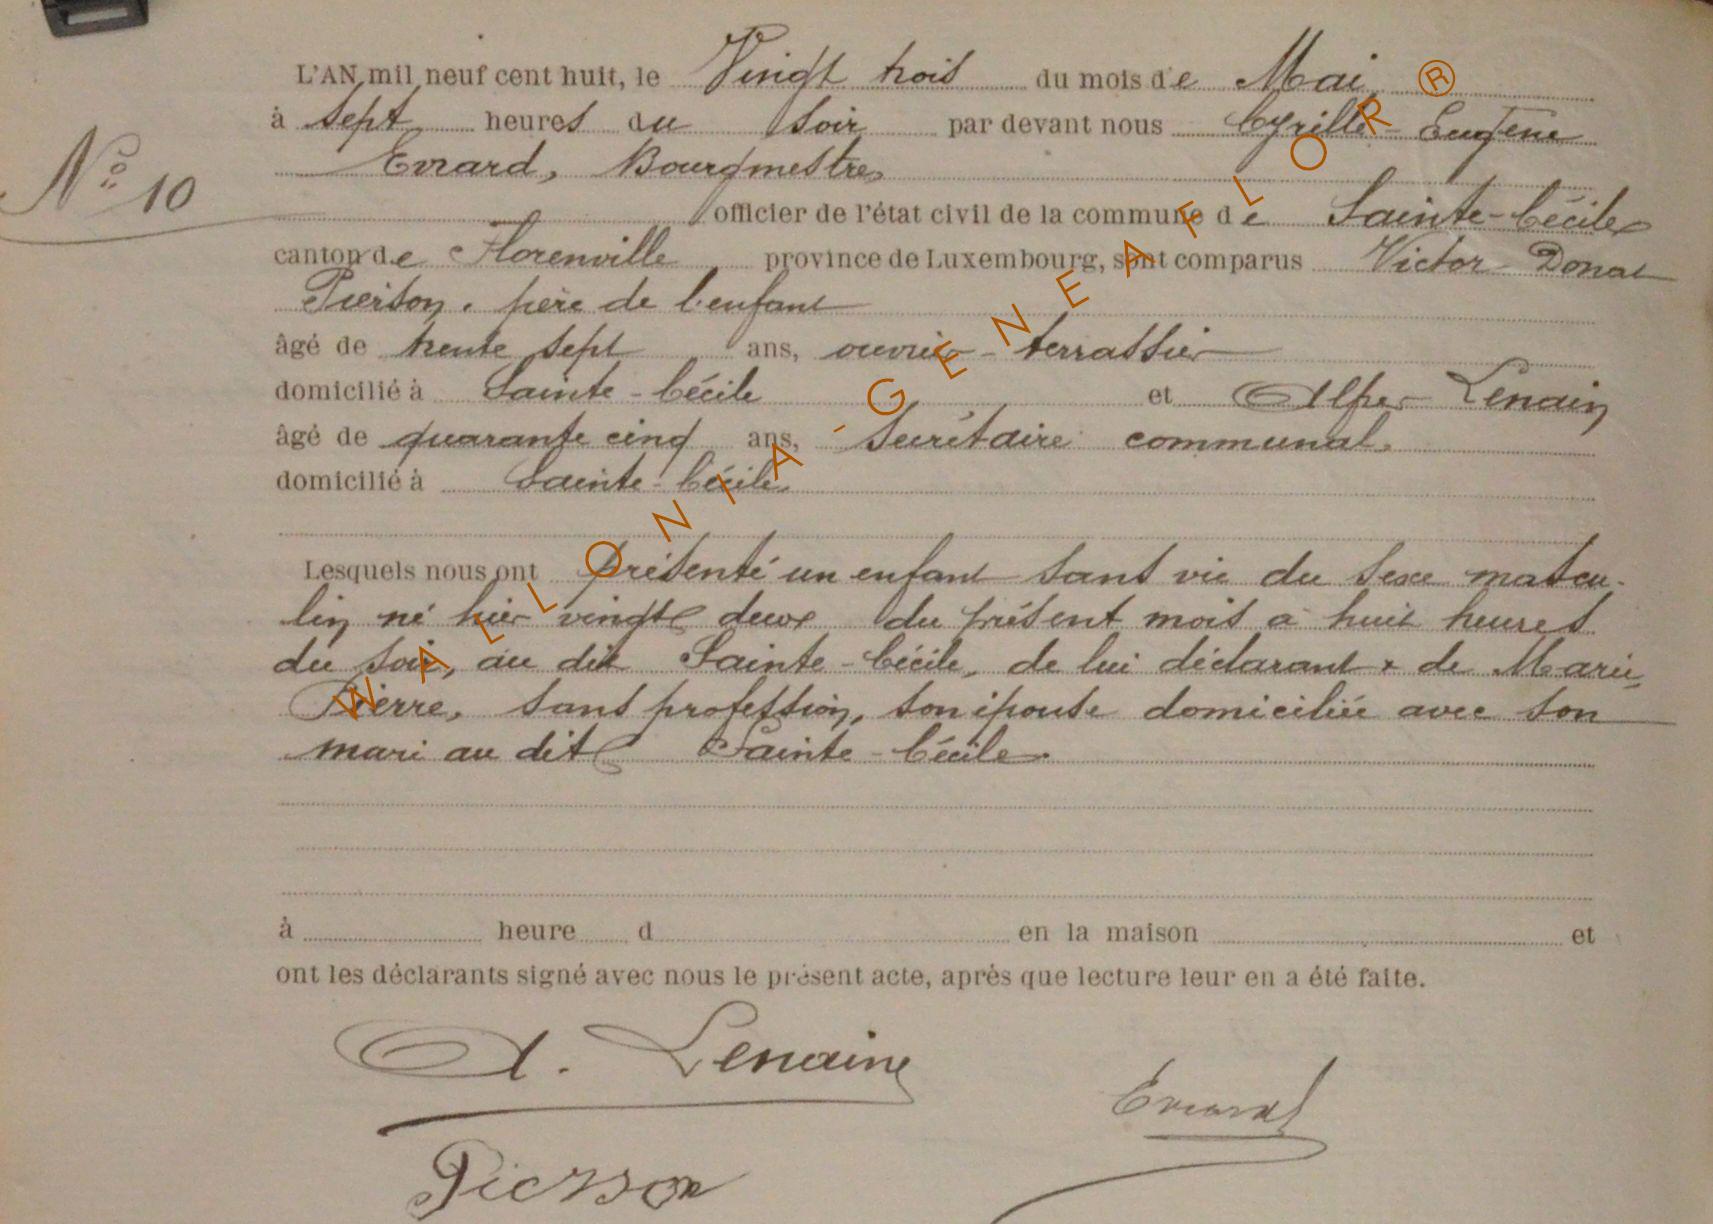 L'AN mil neuf cent huit, le Vingt trois du mois de Mai
à sept heures du soir par devant nous Cyrille - Eugène
Evrard, Bourgmestre
N° 10
officier de l'état civil de la commune de Sainte-Cécile
canton de Florenville province de Luxembourg, sont comparus Victor - Donat
Pierson, père de l'enfant
âgé de trente sept ans, ouvrier - terrassier
domicilié à Sainte - Cécile et Lenain
âgé de quarante cinq ans, secrétaire communal,
domicilié à Sainte - Cécile
Lesquels nous ont présenté un enfant sans vie du sexe mascu-
lin né hier vingt deux du présent mois à huit heures
du soir, au dit Sainte - Cécile, de lui déclarant & de Marie
Pierre, sans profession, son épouse domiciliée avec son
mari au dit Sainte - Cécile.
à heure d en la maison et
ont les déclarants signé avec nous le présent acte, après que lecture leur en a été faite.
A. Lenain
Evrard
Pierson
WALLONIA - GENEAFLOR®